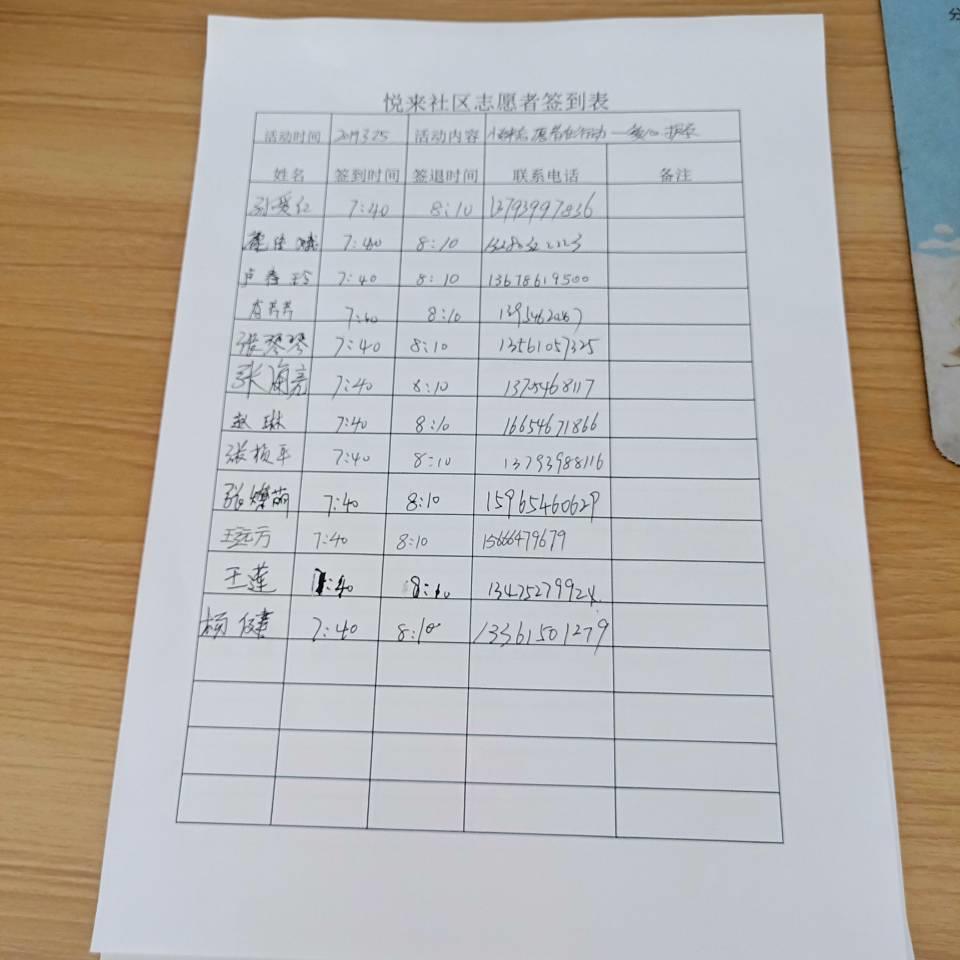 分
悦来社区志愿者签到表
活动时间 2019.3.25 活动内容 志愿者在行动——爱心
姓名 签到时间 签退时间 联系电话 备注
孙爱仁 7:40 8:10 13793997836
7:40 8:10
卢春玲 7:40 8:10 13678619500
7:40 8:10
张琴琴 7:40 8:10 13561057325
张海亮 7:40 8:10
赵琳 7:40 8:10 16654671866
张桢平 7:40 8:10 13793988116
张灿萌 7:40 8:10 15965460629
7:40 8:10 15666479679
王莲 7:40 8:10
杨健 7:40 8:10 13361501279